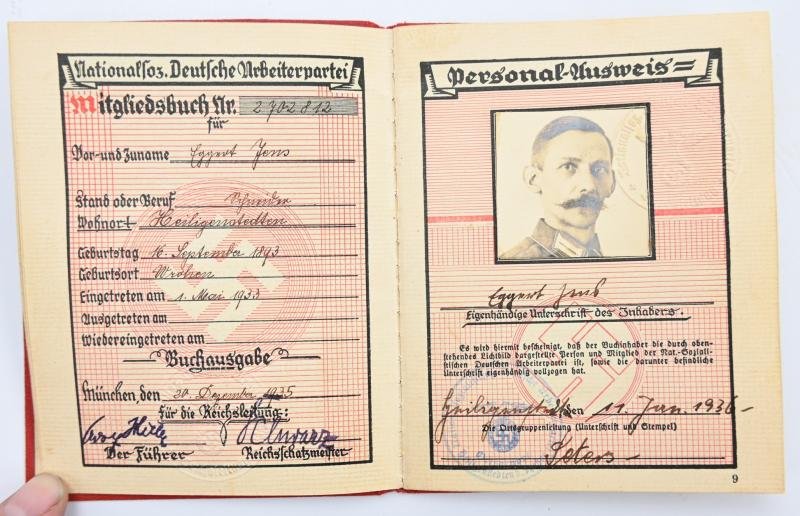 Nationalsoz. Deutsche Arbeiterpartei
Mitgliedsbuch Nr. 2702812
für
Vor- und Zuname Eggert Jens
Stand oder Beruf Schneider
Wohnort Heiligenstedten
Geburtstag 16. September 1893
Geburtsort
Eingetreten am 1. Mai 1933
Ausgetreten am
Wiedereingetreten am
Buchausgabe
München, den 20. Dezember 1935
Für die Reichsleitung:
Schwarz
Der Führer Reichsschatzmeister
Personal-Ausweis
Eggert Jens
Eigenhändige Unterschrift des Inhabers.
Es wird hiermit bescheinigt, daß der Buchinhaber die durch oben-
stehendes Lichtbild dargestellte Person und Mitglied der Nat.-Soziali-
stischen Deutschen Arbeiterpartei ist, sowie die darunter befindliche
Unterschrift eigenhändig vollzogen hat.
den 11. Jan. 1936
Die Ortsgruppenleitung (Unterschrift und Stempel)
Peters
9